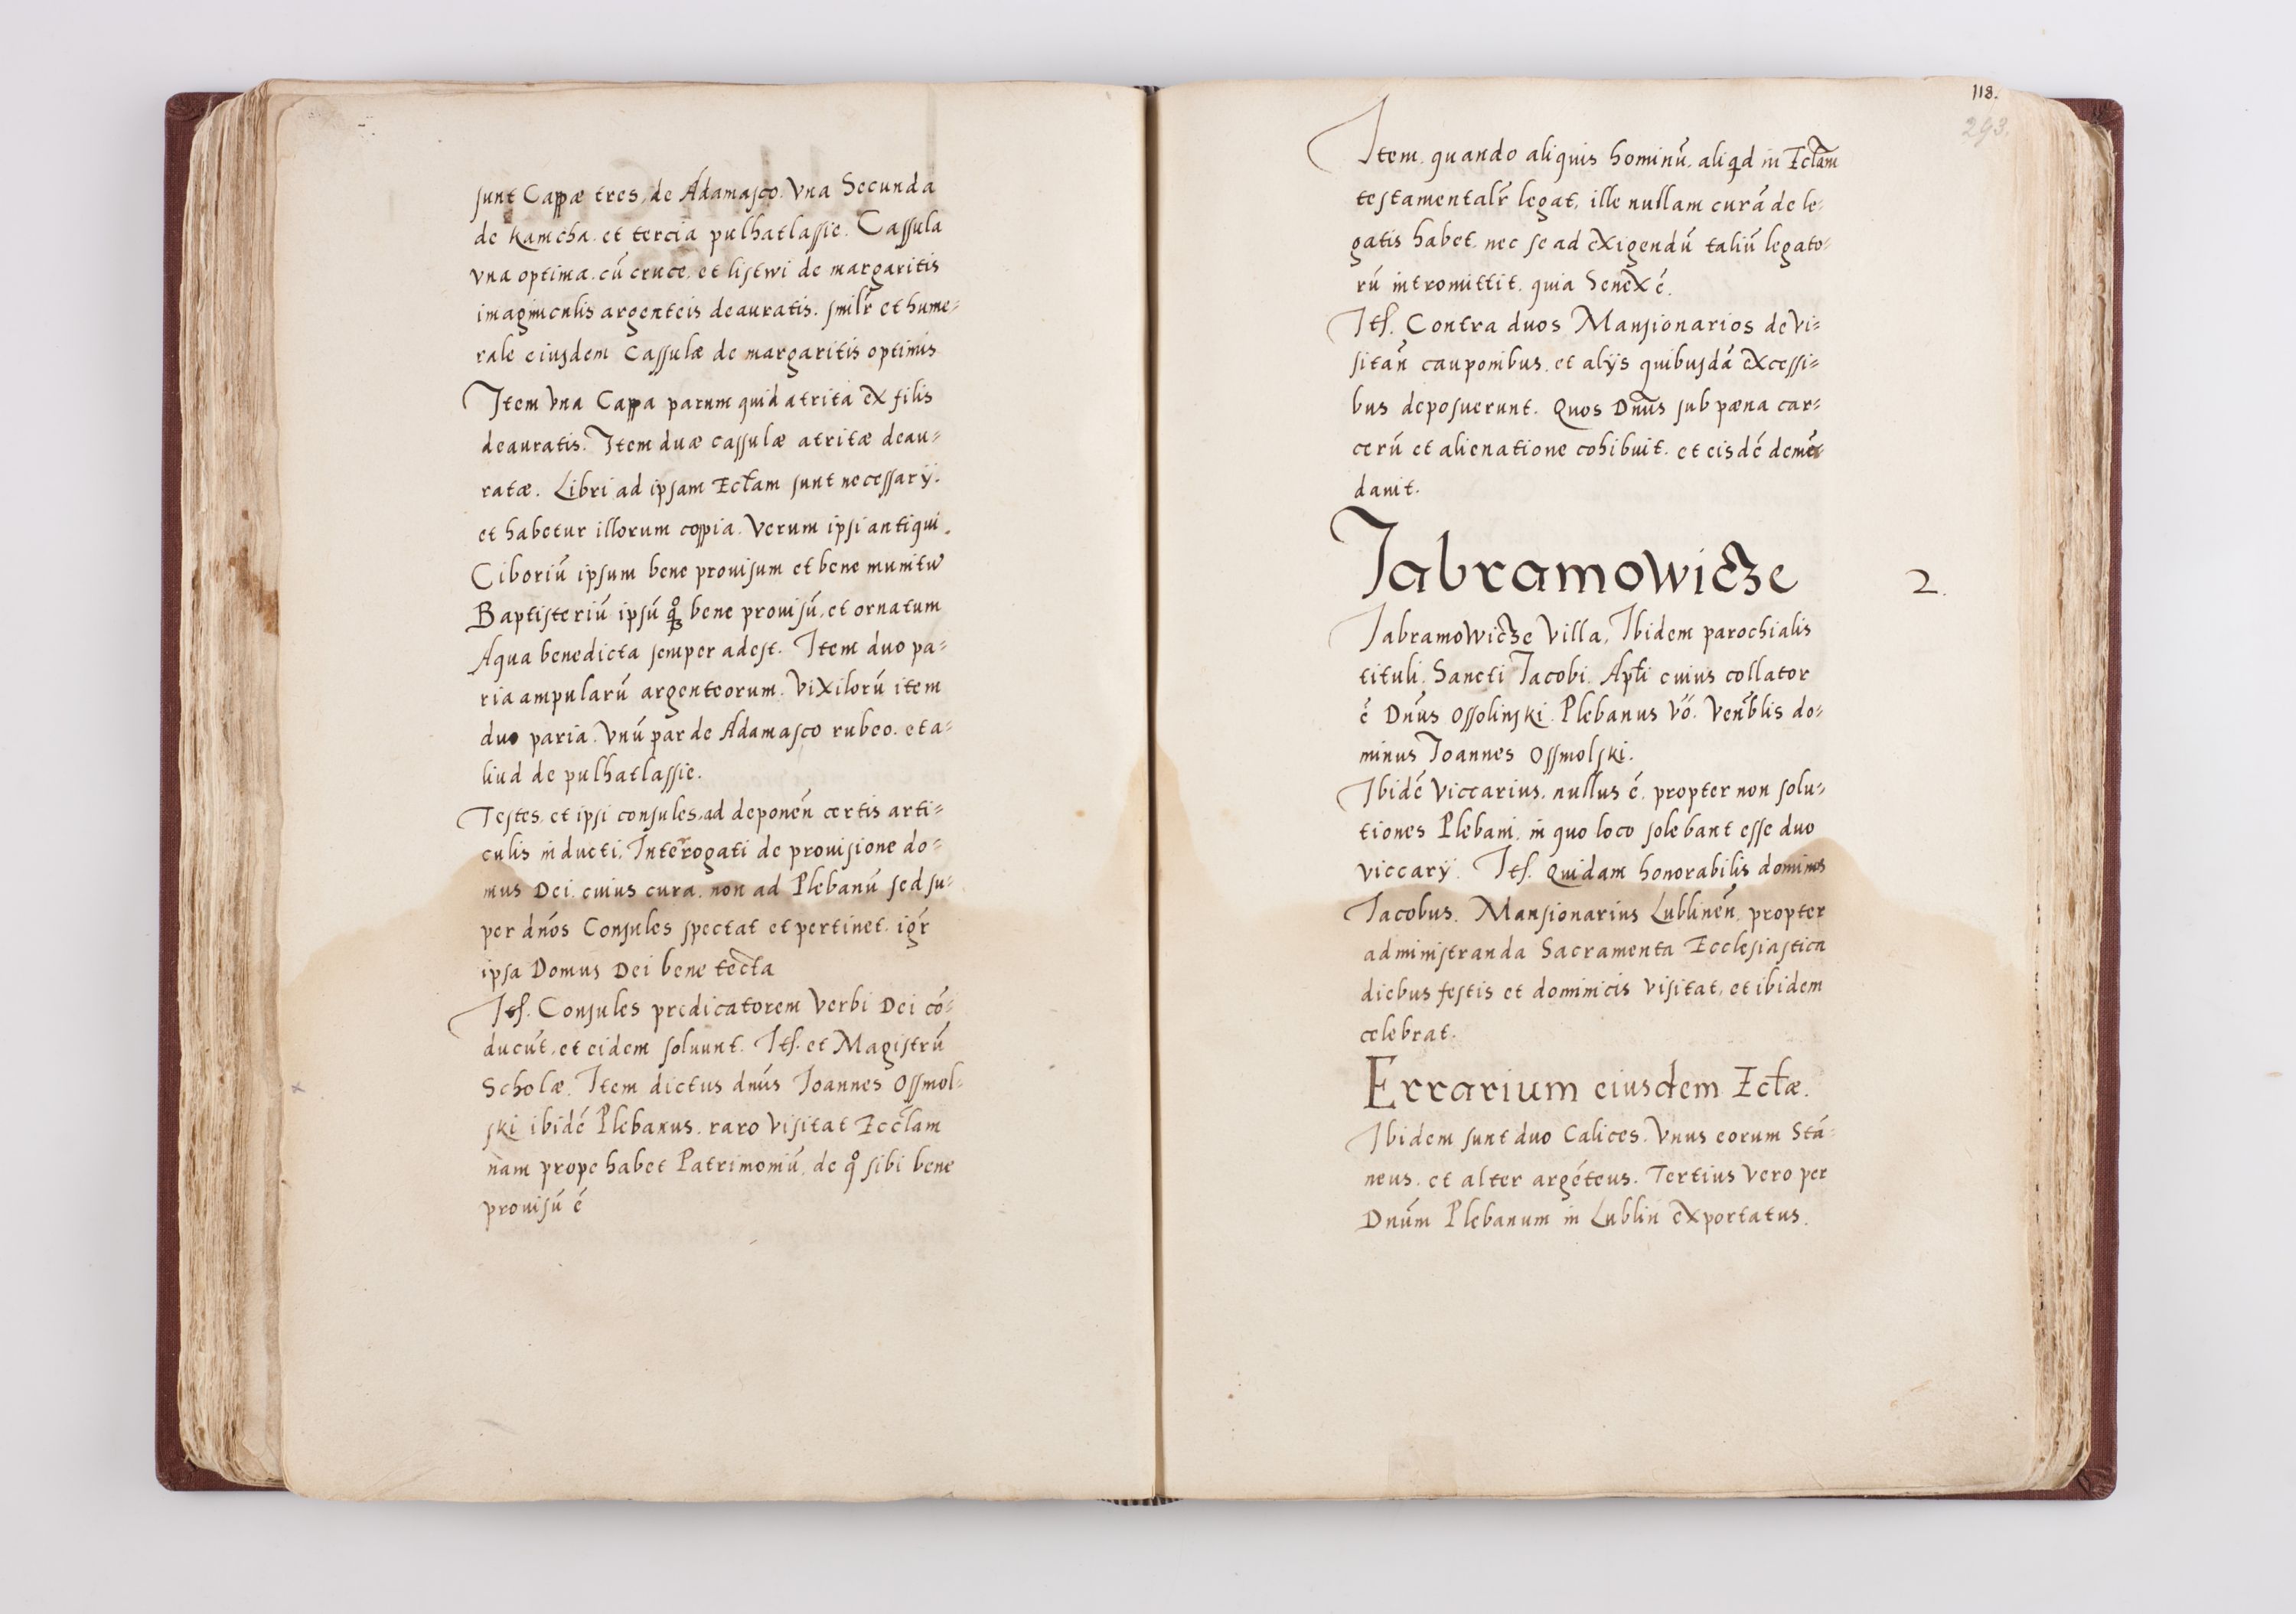 sunt Cappæ tres, de Adamasco. Vna Secunda
de Kamcha. et tercia pulhatlassie. Cassula
vna optima. cū cruce, et listwi de margaritis
imaginculis argenteis deauratis. smilr̄ et hume=
rale eiusdem Cassulæ de margaritis optimis
Item Vna Cappa parum quid atrita ex filis
deauratis. Item duæ cassulæ atritæ deau=
ratæ. Libri ad ipsam Ecl̄am sunt necessarÿ.
et habetur illorum copia. Verum ipsi antiqui.
Ciboriū ipsum bene prouisum et bene munitū
Baptisteriū ipsū bene prouisū, et ornatum
Aqua benedicta semper adest. Item duo pa=
ria ampularū argenteorum. Vixilorū item
duo paria. Vnū par de Adamasco rubeo. et a=
liud de pulhatlassie.
Testes, et ipsi consules, ad deponen̄ certis arti=
culis inducti, Interogati de prouisione do=
mus Dei. cuius cura. non ad Plebanū sed su=
per dn̄os Consules spectat et pertinet. igr̄
ipsa Domus Dei bene tecta
Itf. Consules predicatorem Verbi Dei cō=
ducūt, et eidem soluunt. Itf. et Magistrū
Scholæ. Item dictus dn̄us Joannes Ossmol=
ski ibidē Plebanus. raro Visitat Eccl̄am
nam prope habet Patrimoniū, de qo sibi bene
prouisū ē
118.
293.
Item. quando aliquis hominū. aliqd in Ecl̄am
testamentalr̄ legat, ille nullam curā de le=
gatis habet, nec se ad exigendū taliū legato=
rū intromittit. quia Senex ē.
Itf. Contra duos Mansionarios de Vi=
sitan̄ cauponibus. et alÿs quibusdā excessi=
bus deposuerunt. Quos Dn̄us sub pæna car=
cerū et alienatione cohibuit. et eisdē demē
dauit.
Jabramowicze
2.
Jabramowicze Villa, Ibidem parochialis
tituli. Sancti Jacobi. Apl̄i cuius collator
ē Dn̄us Ossolinski. Plebanus Vō. Ven̄blis do=
minus Joannes Ossmolski.
Ibidē Viccarius. nullus ē. propter non solu=
tiones Plebani, in quo loco solebant esse duo
viccarÿ. Itf. Quidam honorabilis dominus
Jacobus. Mansionarius Lublinen̄, propter
administranda Sacramenta Ecclesiastica
diebus festis et dominicis Visitat, et ibidem
celebrat.
Errarium eiusdem Ecl̄æ.
Ibidem sunt duo Calices. Vnus eorum Stā=
neus. et alter argēteus. Tertius Vero per
Dn̄um Plebanum in Lublin exportatus.